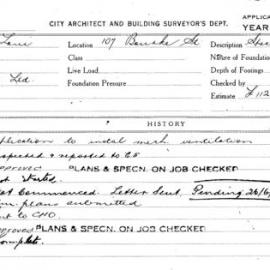 CITY ARCHITECT AND BUILDING SURVEYOR'S DEPT.
APPLIC
YEAR
Lane
Location 109 Bourke St
Description
Class
Nature of Foundation
Live Load
Depth of Footings
Ltd.
Foundation Pressure
Checked by
Estimate £112
HISTORY
pplication to instal mech. ventilation
nspected & reported to CS
PPROVED PLANS & SPECN. ON JOB CHECKED
ot started
ot Commenced. Letter Sent. Pending 26/6/
plans submitted
nt to CHO.
PPROVED PLANS & SPECN. ON JOB CHECKED
omplete.